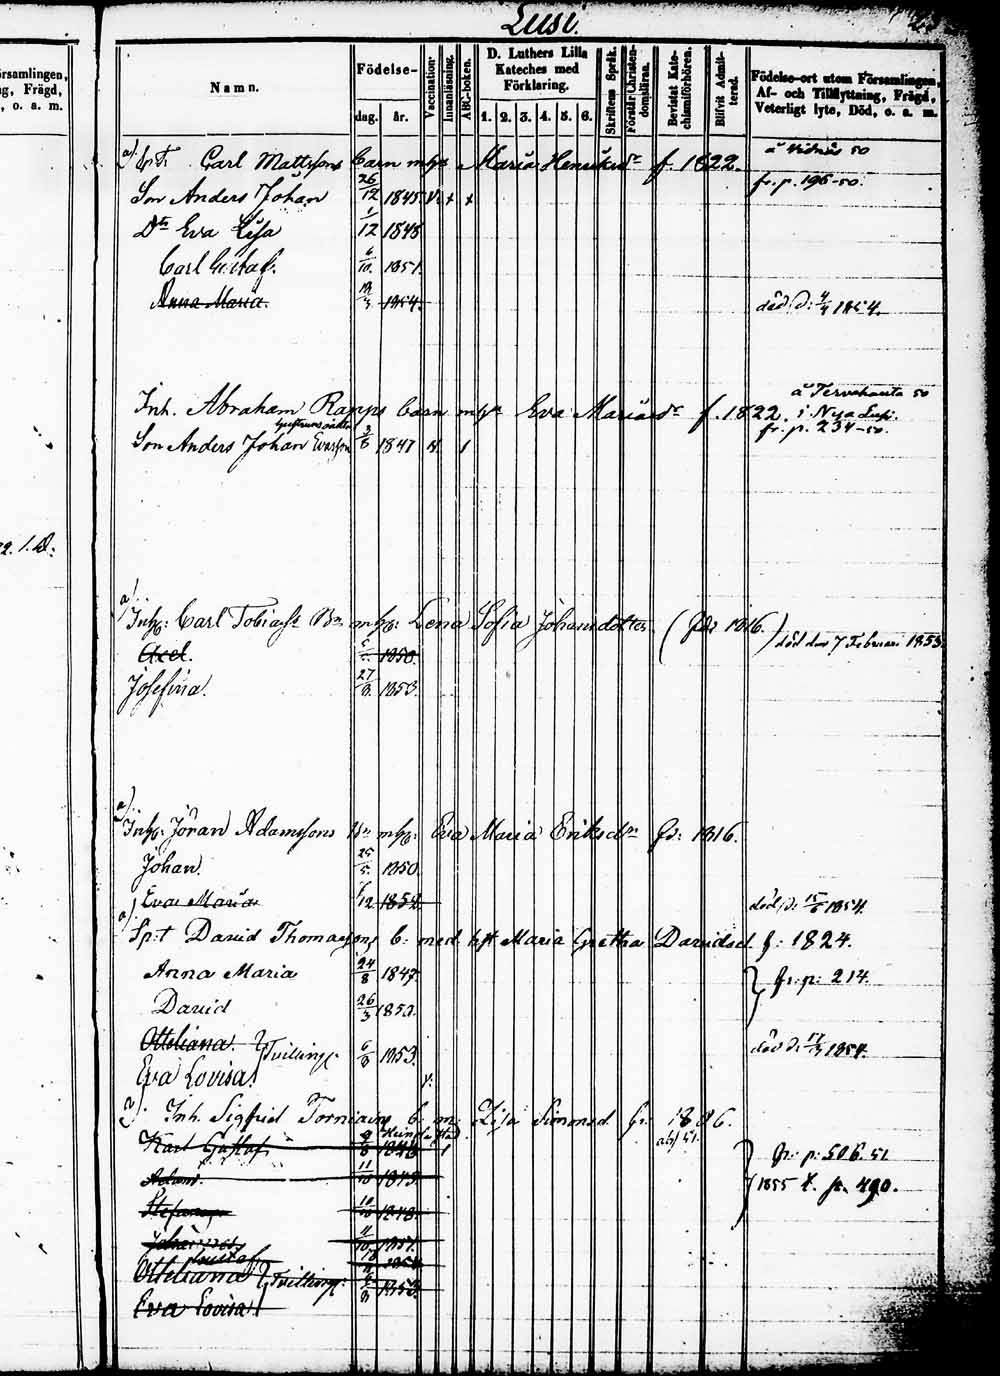 Lusi.
örsamlingen,
g, Frägd,
, o. a. m.
Namn.
Födelse-
dag.
år.
Vaccination.
Innanläsning.
ABC-boken.
D. Luthers Lilla
Kateches med
Förklaring.
1. 2. 3. 4. 5. 6.
Skriftens Språk.
Förstår Christen-
domsläran.
Bevistat Kate-
chismiförhören.
Blifvit Admit-
terad.
Födelse-ort utom Församlingen,
Af- och Tillflyttning, Frägd,
Veterligt lyte, Död, o. a. m.
a) Carl Mattssons barn m. Maria Henriksdr f. 1822.
fr. p. 196-50.
Son Anders Johan 26/12 1845
Dtr Eva Lisa 1/12 1848
Carl Gustaf. 6/10. 1851.
Anna Maria. 1854. död d: 4/4 1854.
å Tervehauta 50
Inh. Abraham Rapps barn m Eva Mariasdr f. 1822. i Nya Lusi.
fr. p. 234-50.
Son Anders Johan Evasson 1847
22. 1. D.
a) Inh: Carl Tobiass Bn m Lena Sofia Johansdotter (fdr 1816.) död den 7 Februari 1853.
Axel. 1850.
Josefina. 27/8. 1853.
a) Inh: Jöran Adamssons Bn m Eva Maria Eriksdr fd: 1816.
Johan. 25/5. 1850.
Eva Maria 1/12 1852 död d: 15/6 1854.
a) Sp:t David Thomassons b. med hst Maria Gretha Davidsd. f: 1824.
Anna Maria 24/8 1847. fr. p: 214.
David 26/3 1850.
Otteliana. Tvillingr 6/8 1853. död d: 17/3 1854.
Eva Lovisa.
a) Inh. Sigfrid Torniains b. m. Lisa Simonsd. fr. 1806.
Karl Gustaf 1840 fr. p: 506. 51
Adam. 11/10 1843. 1855 t. p. 490.
Stefanus 10/10 1848.
Johannes 1851.
Gustaf 1854
Otteliana Tvillingr. 6/8 1853.
Eva Lovisa.